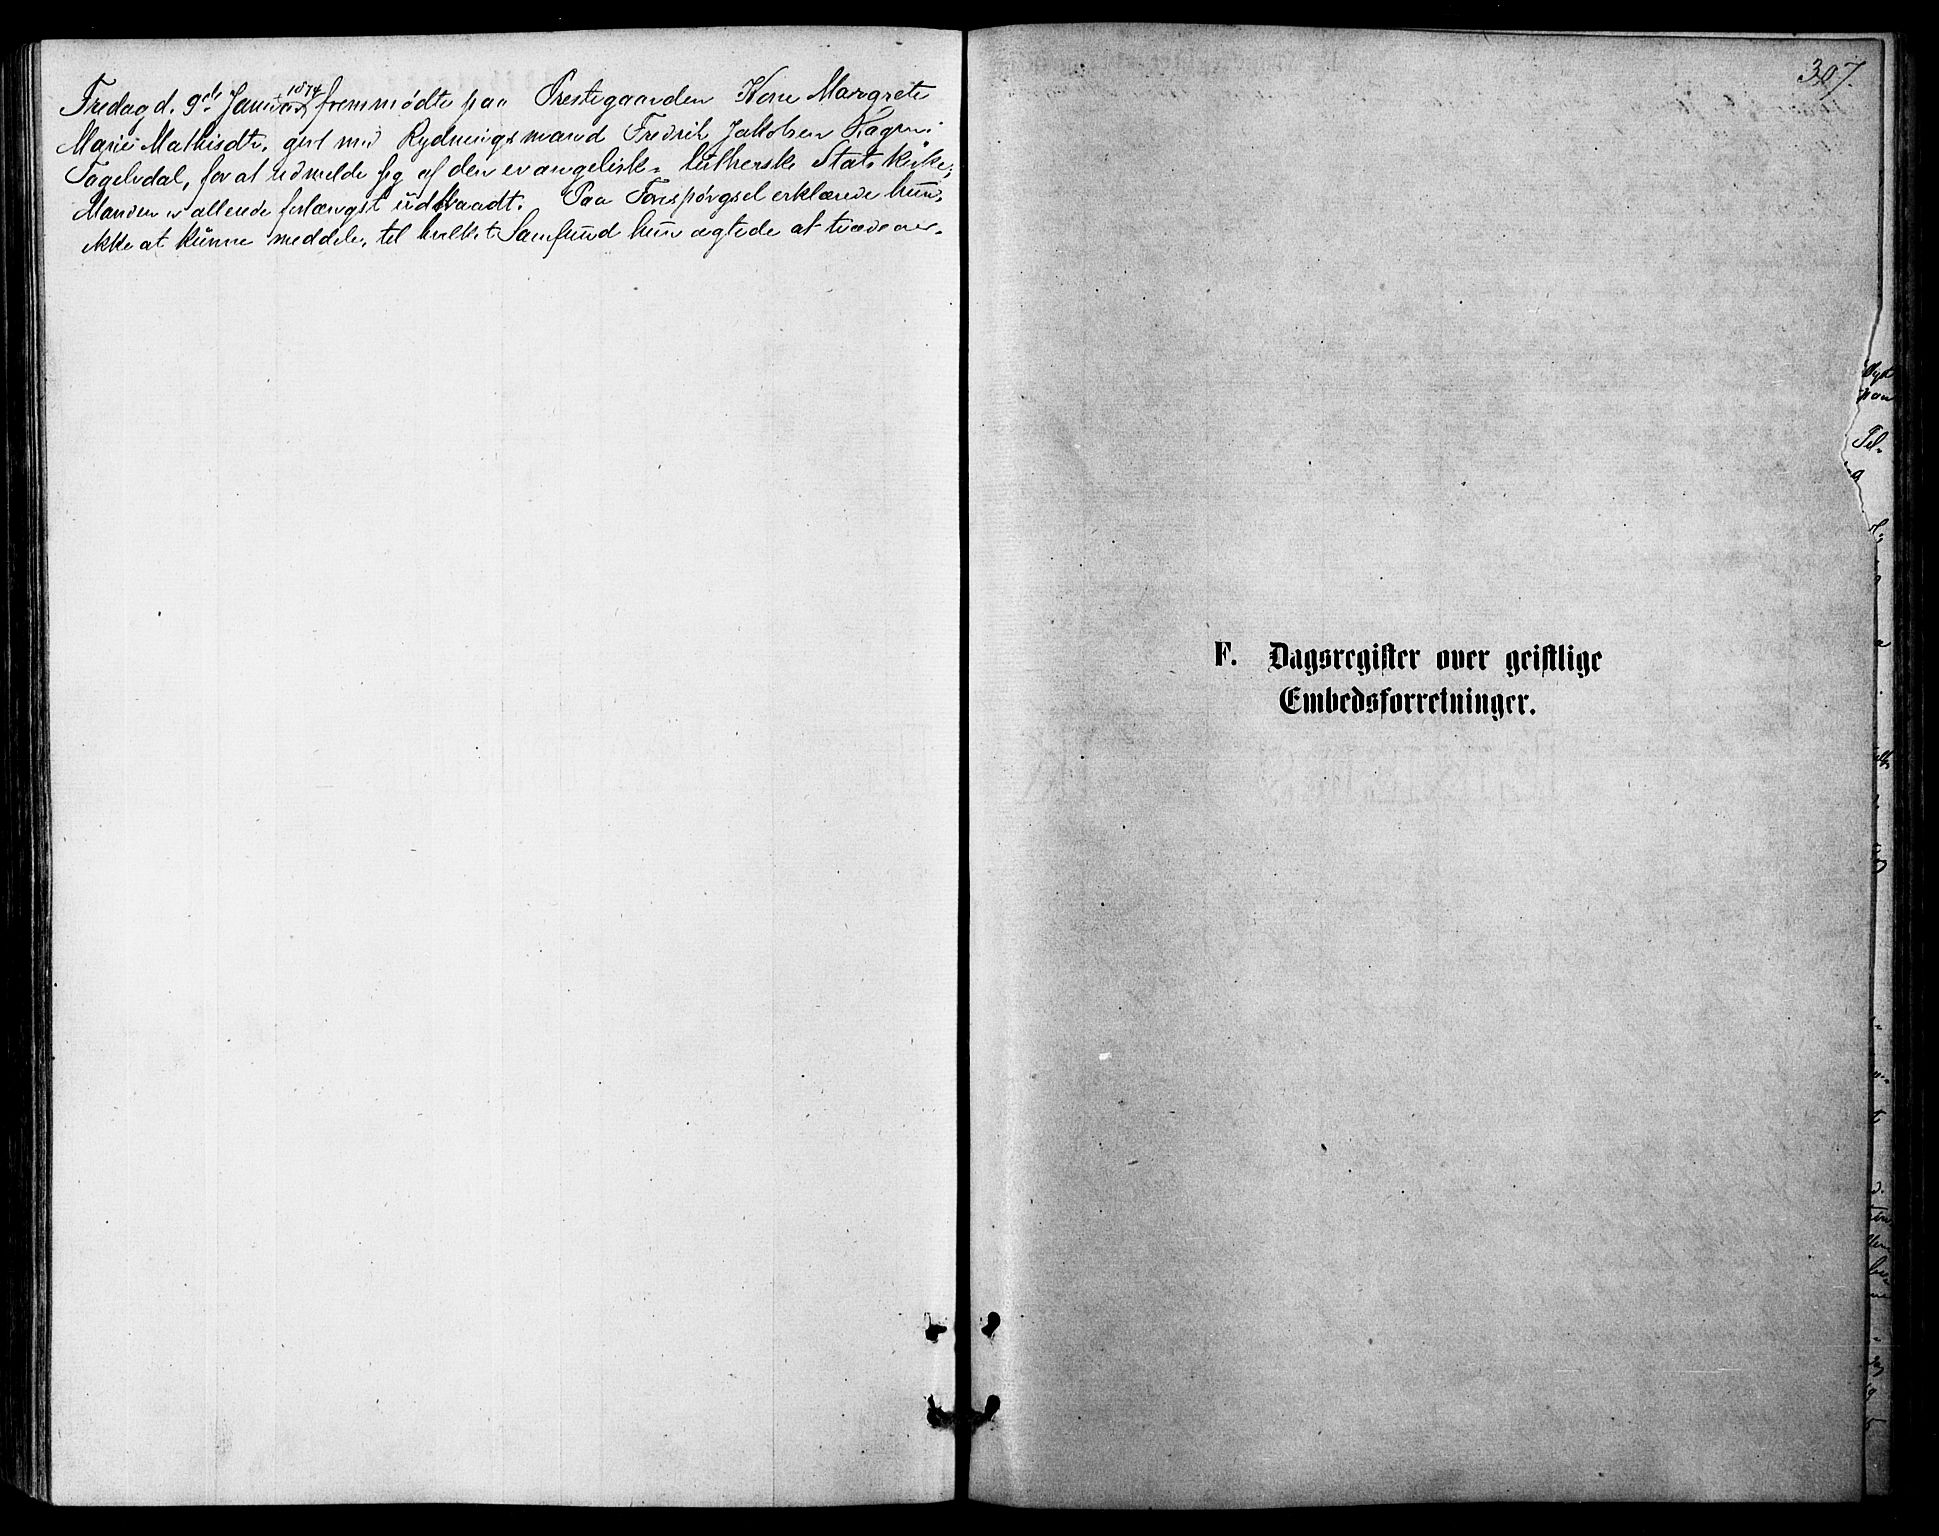 Fredag d. 9de Januar 1874 fremmødte paa Prestegaarden Kone Margrete
Marie Mathisdtr. gift med Rydningsmand Fredrik Jakobsen Hagen i
Tagelvdal, for at udmelde sig af den evangelisk-lutherske Statskirke;
Manden er allerede forlængst udtraadt. Paa Forespørgsel erklærede hun,
ikke at kunne meddele, til hvilket Samfund hun agtede at træde over.
307.
F. Dagsregister over geistlige
Embedsforretninger.